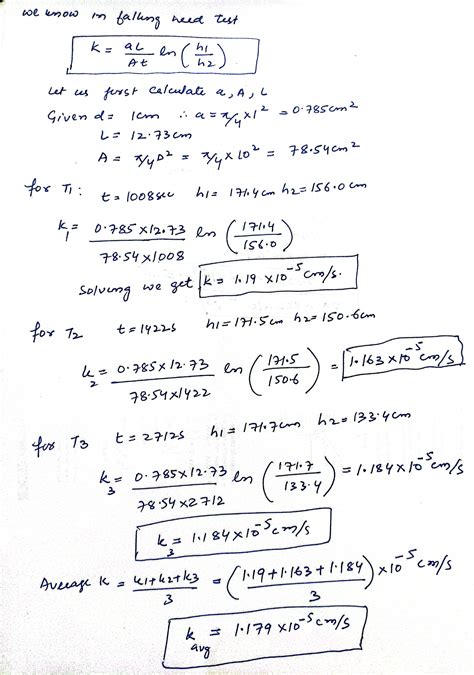 we know in falling head test
K = aL/At ln (h1/h2)
Let us first calculate a, A, L
Given d = 1cm ∴ a = π/4 × 1² = 0.785cm²
L = 12.73cm
A = π/4 D² = π/4 × 10² = 78.54cm²
for T1: t = 1008sec h1 = 171.4cm h2 = 156.0cm
k1 = 0.785 × 12.73 / 78.54 × 1008 ln (171.4/156.0)
Solving we get k = 1.19 × 10⁻⁵ cm/s.
for T2 t = 1422s h1 = 171.5cm h2 = 150.6cm
k2 = 0.785 × 12.73 / 78.54 × 1422 ln (171.5/150.6) = 1.163 × 10⁻⁵ cm/s
for T3 t = 2712s h1 = 171.7cm h2 = 133.4cm
k3 = 0.785 × 12.73 / 78.54 × 2712 ln (171.7/133.4) = 1.184 × 10⁻⁵ cm/s
k3 = 1.184 × 10⁻⁵ cm/s
Average k = k1+k2+k3 / 3 = (1.19 + 1.163 + 1.184 / 3) × 10⁻⁵ cm/s
kavg = 1.179 × 10⁻⁵ cm/s